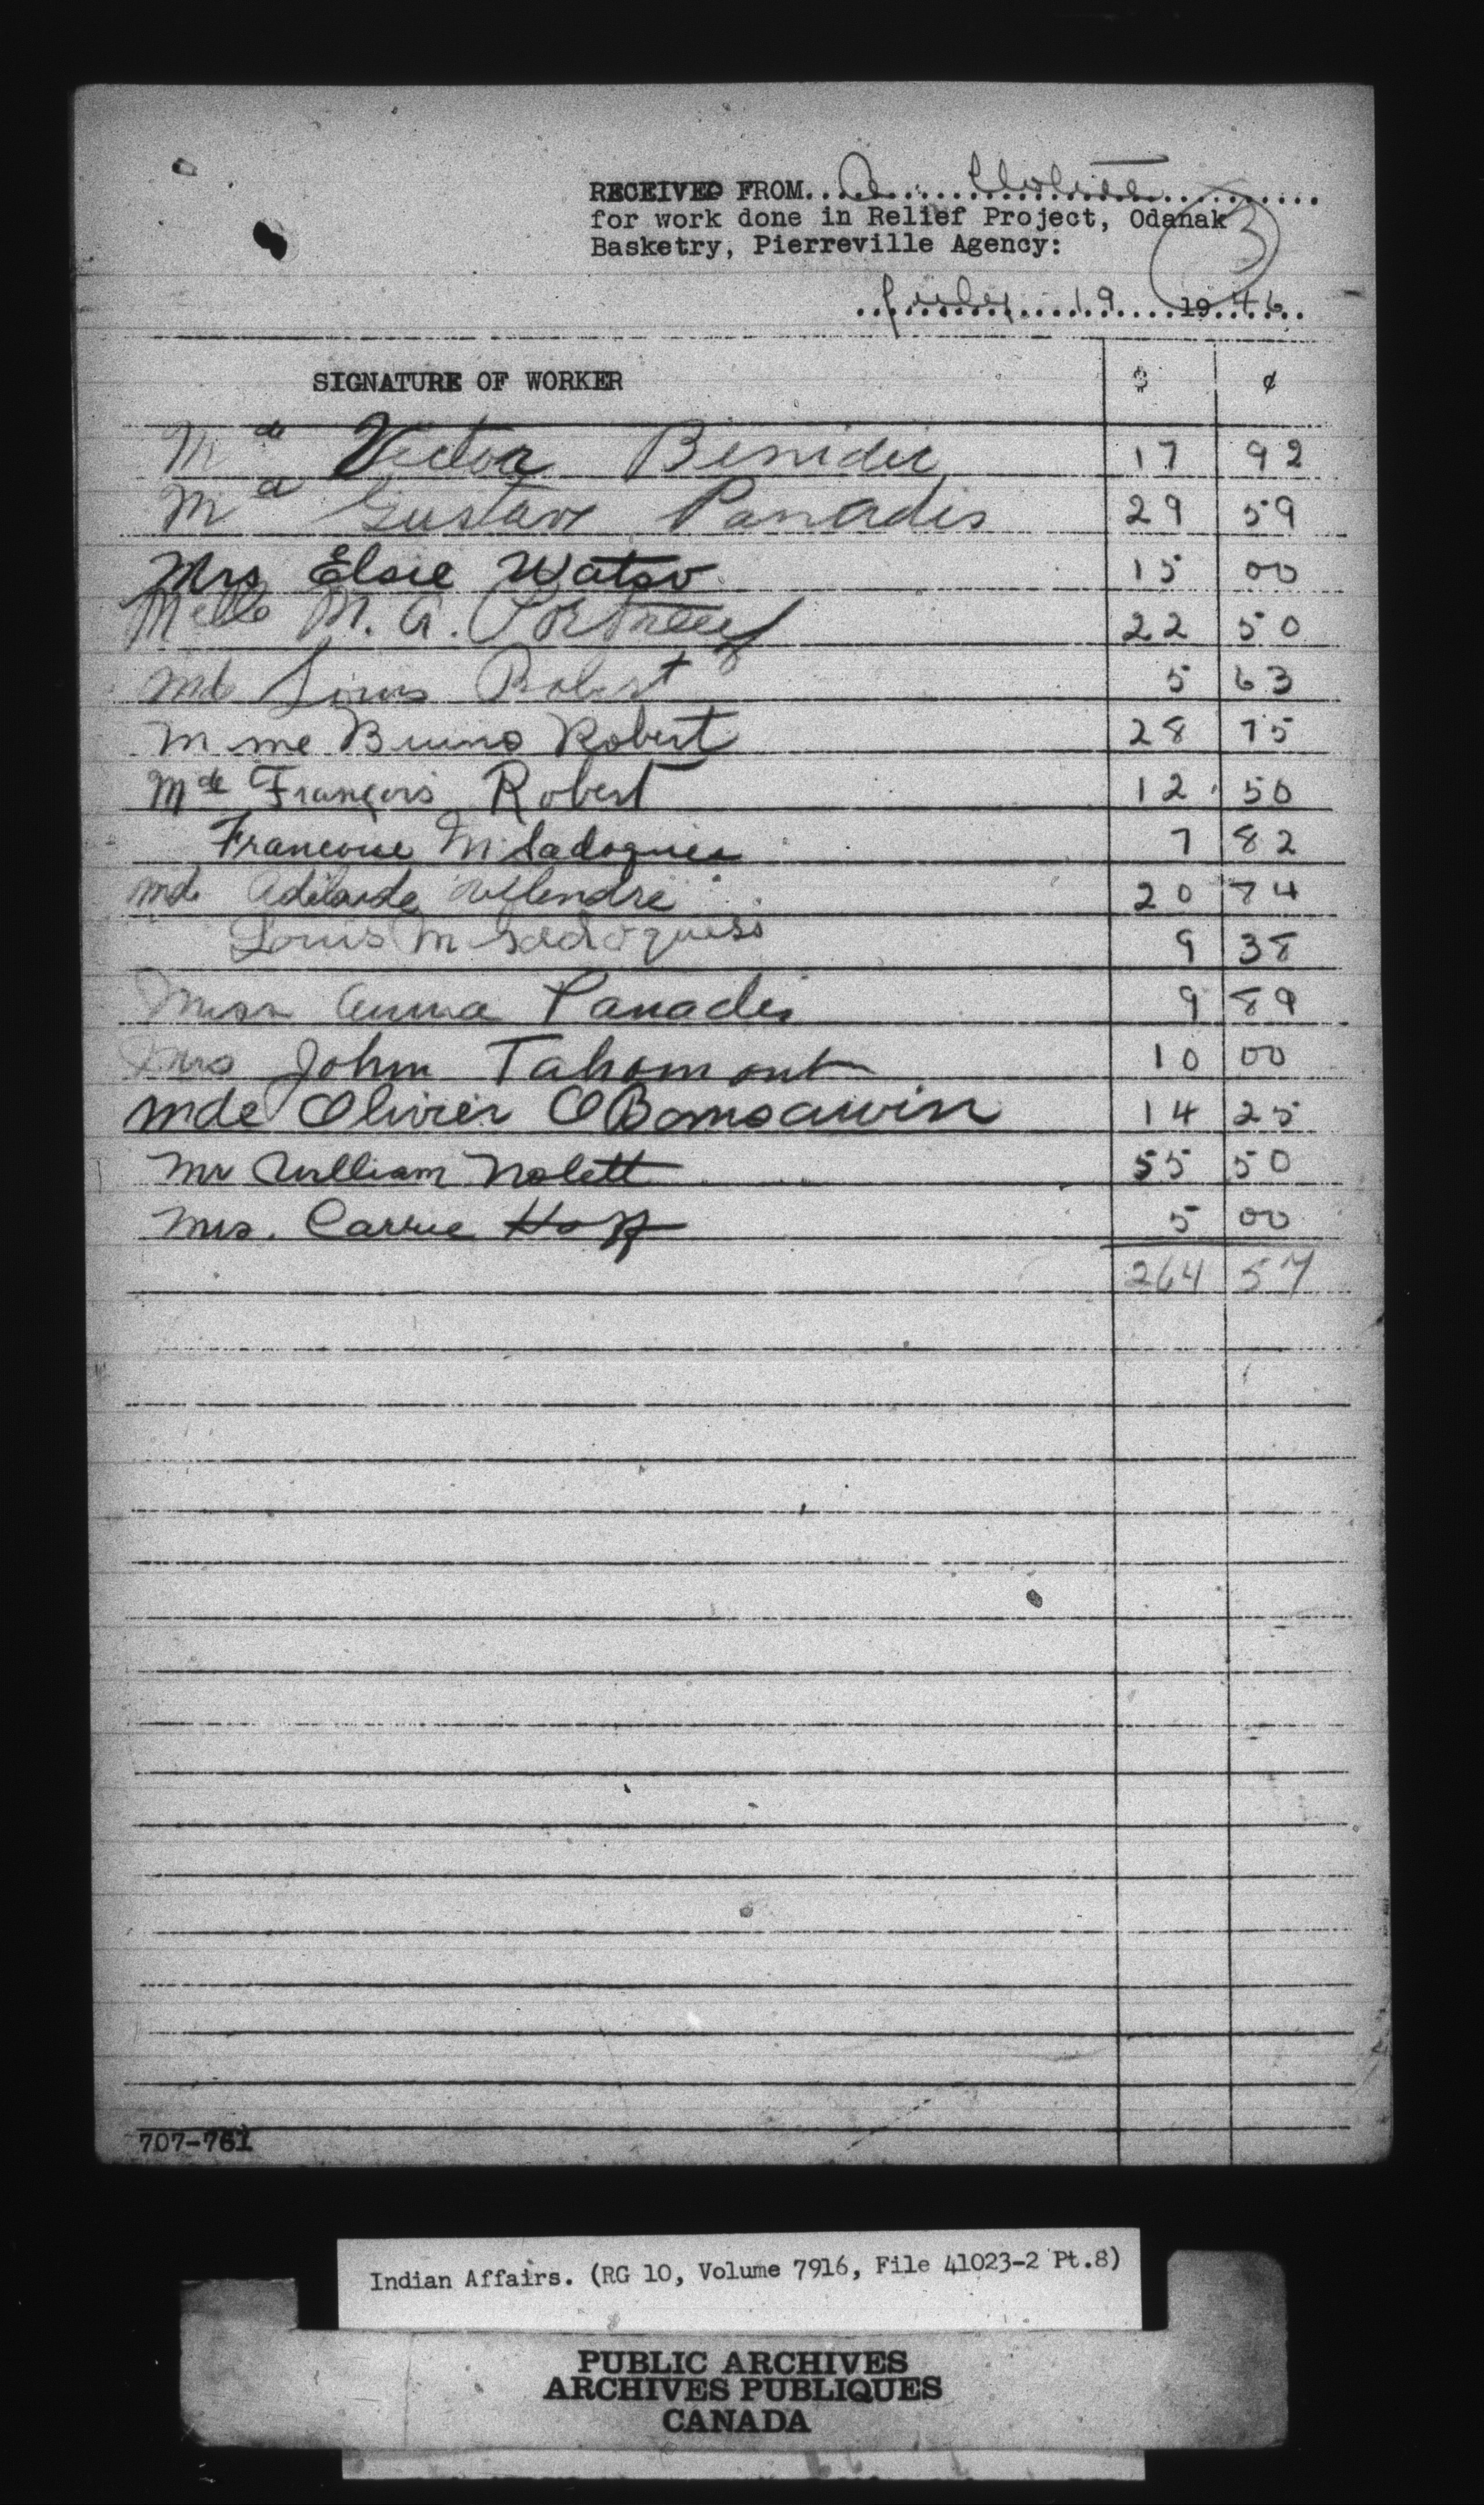 RECEIVED FROM
for work done in Relief Project, Odanak
Basketry, Pierreville Agency:
3
July 19 1946
SIGNATURE OF WORKER $ ¢
Mde Victor Benidic 17 92
Md Gustave Panadis 29 59
Mrs Elsie Watso 15 00
Melle M. A. 22 50
Md Louis Robert 5 63
Mme Bruno Robert 28 75
Mde François Robert 12 50
Francoise M Sadoques 7 82
Md Adelaide 20 74
Louis M Sadoques 9 38
Miss Anna Panadis 9 89
Mrs John Tahomont 10 00
Mde Olivier OBomsawin 14 25
Mr William Nolett 55 50
Mrs. Carrie Hoff 5 00
264 57
707-761
Indian Affairs. (RG 10, Volume 7916, File 41023-2 Pt.8)
PUBLIC ARCHIVES
ARCHIVES PUBLIQUES
CANADA